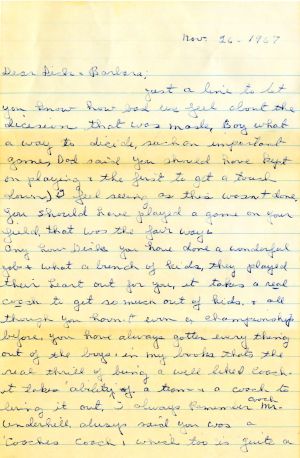 Nov. 26 - 1967
Dear Dick & Barbara;
Just a line to let
you know how sad we feel about the
dicision that was made, Boy what
a way to decide, such an important
game, Dad said you should have kept
on playing & the first to get a touch
down) I feel seeing as this wasn't done,
you should have played a game on your
field, that was the fair way.
Any how Dick you have done a wonderful
job & what a bunch of kids, they played
their heart out for you, it takes a real
coach to get so much out of kids, & all
though you havn't won a championship
before, you have always gotten every thing
out of the boys, in my books thats the
real thrill of being a well liked coach.
it takes ability of a team & a coach to
bring it out, I always remember coach Mr.
Underhill always said you was a
'coaches coach', which too is quite a